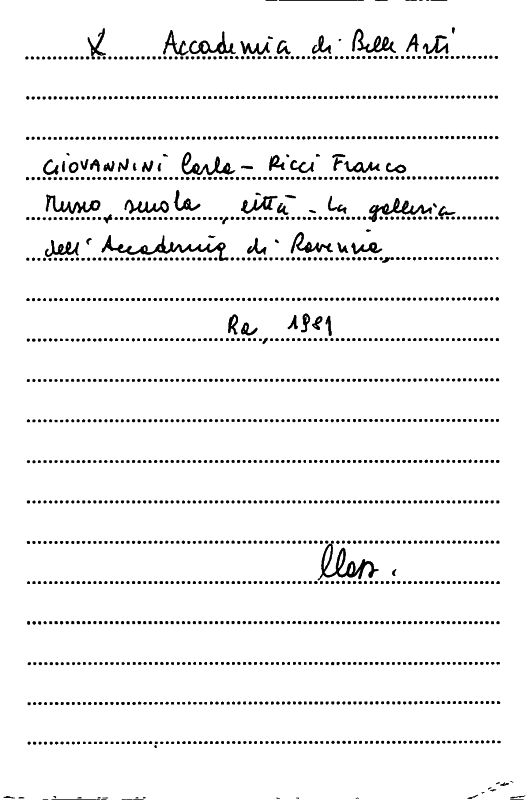 X Accademia di Belle Arti
GIOVANNINI Carla - Ricci Franco
Museo, scuola, città - La galleria
dell'Accademia di Ravenna,
Ra, 1981